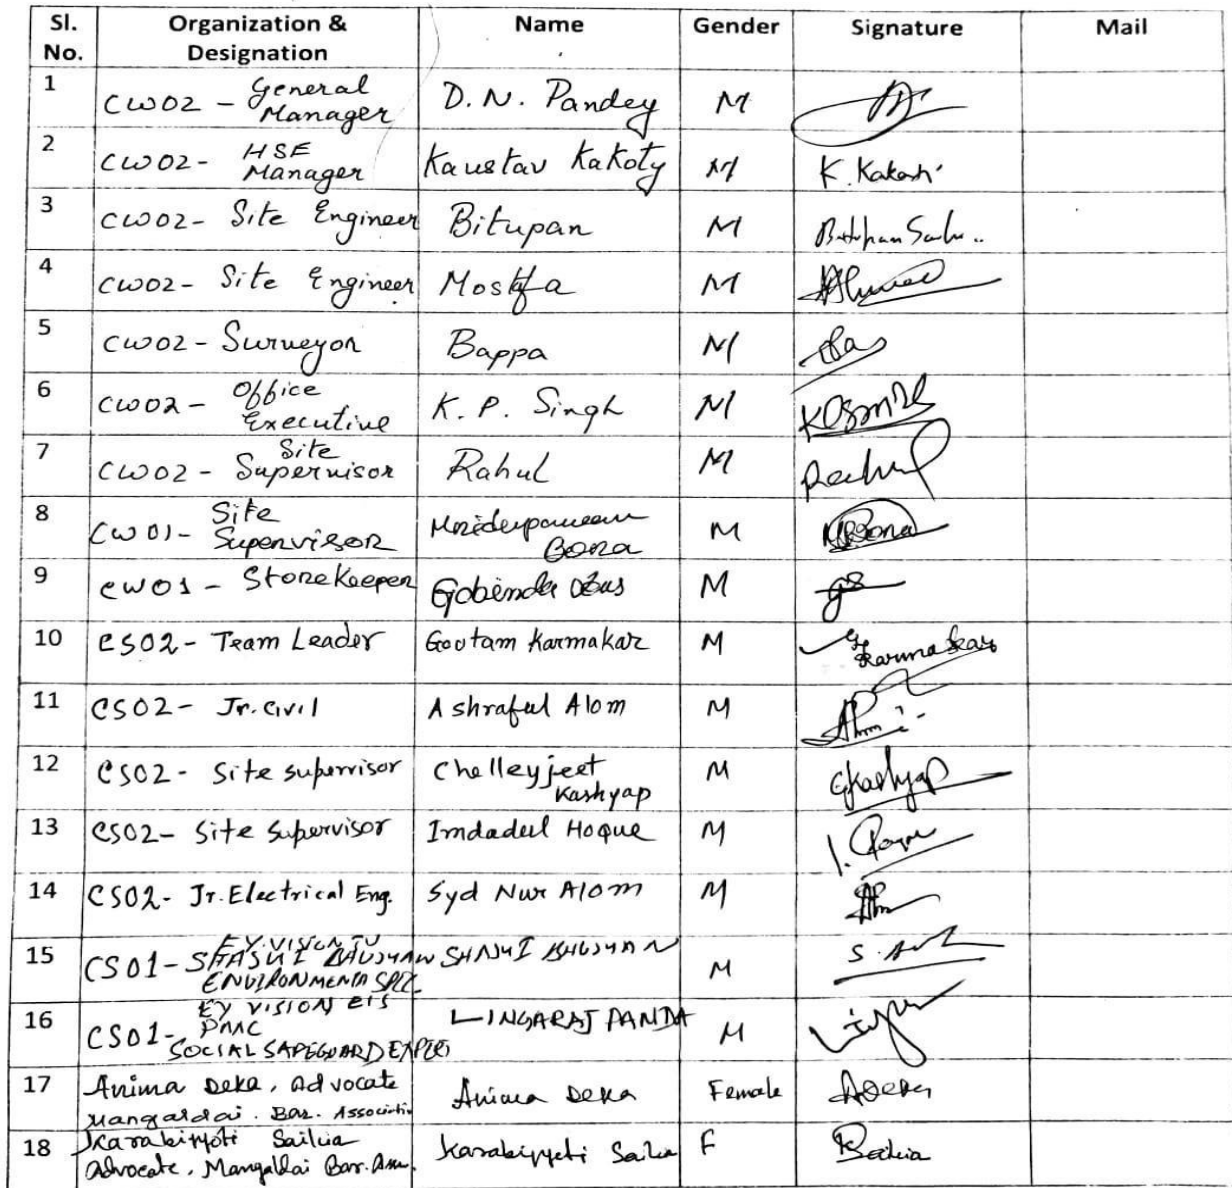 Sl. No. Organization & Designation Name Gender Signature Mail
1 CW02 - General Manager D. N. Pandey M
2 CW02 - HSE Manager Kaustav Kakoty M K. Kakoti
3 CW02 - Site Engineer Bitupan M
4 CW02 - Site Engineer Mostafa M Ahmed
5 CW02 - Surveyor Bappa M Das
6 CW02 - Office Executive K. P. Singh M
7 CW02 - Site Supervisor Rahul M Rahul
8 CW01 - Site Supervisor Bora M
9 CW01 - Storekeeper Gobinda Das M
10 CS02 - Team Leader Goutam Karmakar M Karmakar
11 CS02 - Jr. Civil Ashraful Alom M
12 CS02 - Site supervisor Chelleyjeet Kashyap M GKashyap
13 CS02 - Site Supervisor Imdadul Hoque M
14 CS02 - Jr. Electrical Eng. Syd Nur Alom M
15 CS01 - EY VISION ENVIRONMENTA SPEC. BHUSHAN M
16 CS01 - EY VISION EIS PMC SOCIAL SAFEGUARD EXPERT LINGARAJ PANDA M
17 Anima Deka, Advocate Mangaldai. Bar. Association Anima Deka Female ADeka
18 Karabijyoti Saikia Advocate, Mangaldai Bar. Assn. Karabijyoti Saikia F